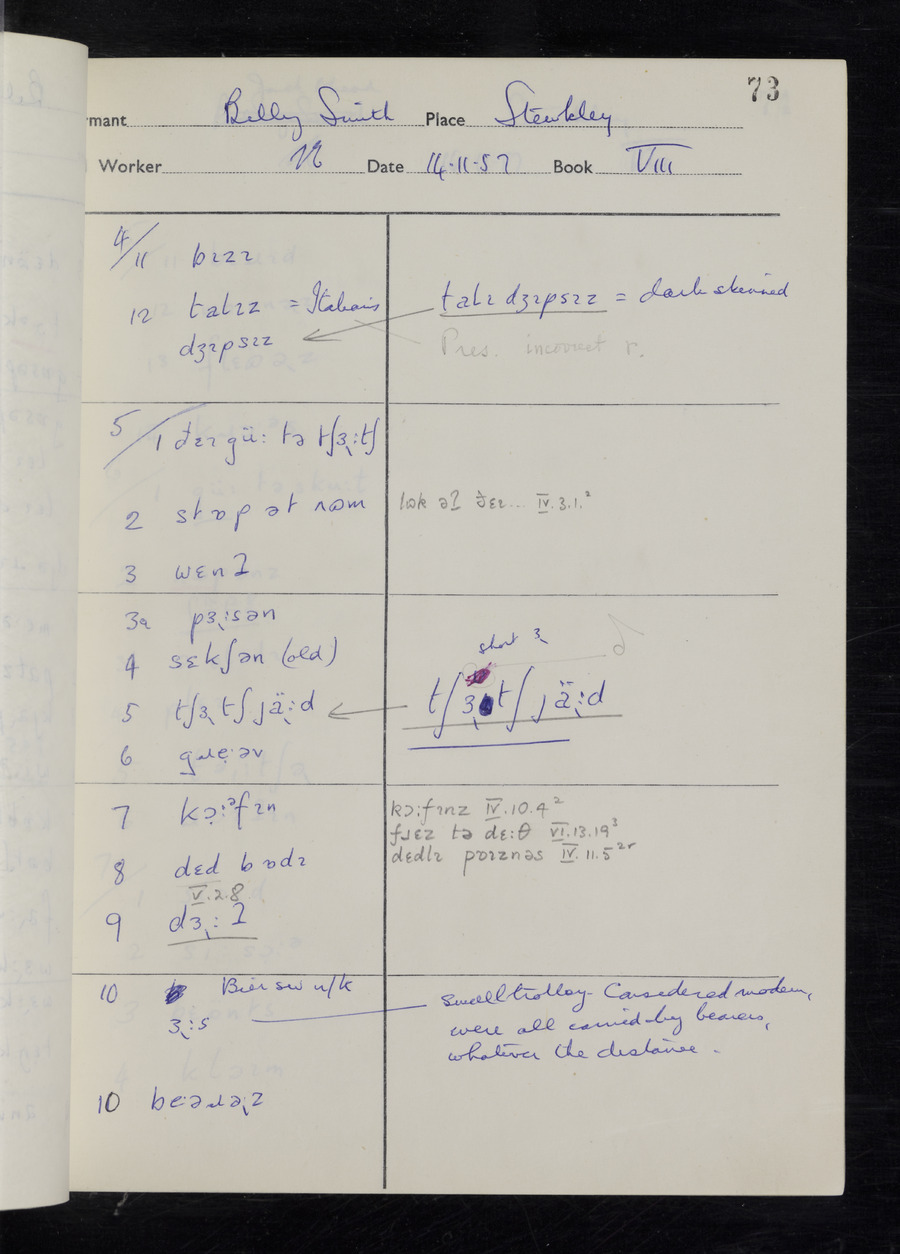 73
rmant Billy Smith Place Stewkley
Worker Date 14-11-57 Book VIII
4/11 bɪzɪ
12 talɪz = Italians
dʒɪpsɪz
talɪ dʒɪpsɪz = dark skinned
Pres. incorrect r.
5/1 ðɛɪ gü: tə tʃɜ˞:tʃ
2 stɒp ət ɹɷm
lɷk əʔ ðɛɪ... IV.3.1.²
3 wɛnʔ
3a pɜ˞:sən
4 sɛkʃən (old)
short ɜ˞
5 tʃɜ˞tʃjä˞:d
tʃɜ˞tʃjä˞:d
6 gɹe:əv
7 kɔ:ᵊfɪn
kɔ:fɪnz IV.10.4²
fɹɛz tə dɛ:θ VI.13.19³
8 dɛd bɒdɪ
dɛdlɪ pɒɪznəs IV.11.5²ʳ
V.2.8
9 dɜ˞:ʔ
10 Bier sw n/k
ɜ˞:s
small trolley - Considered modern,
were all carried by bearers,
whatever the distance.
10 beəɹə˞z